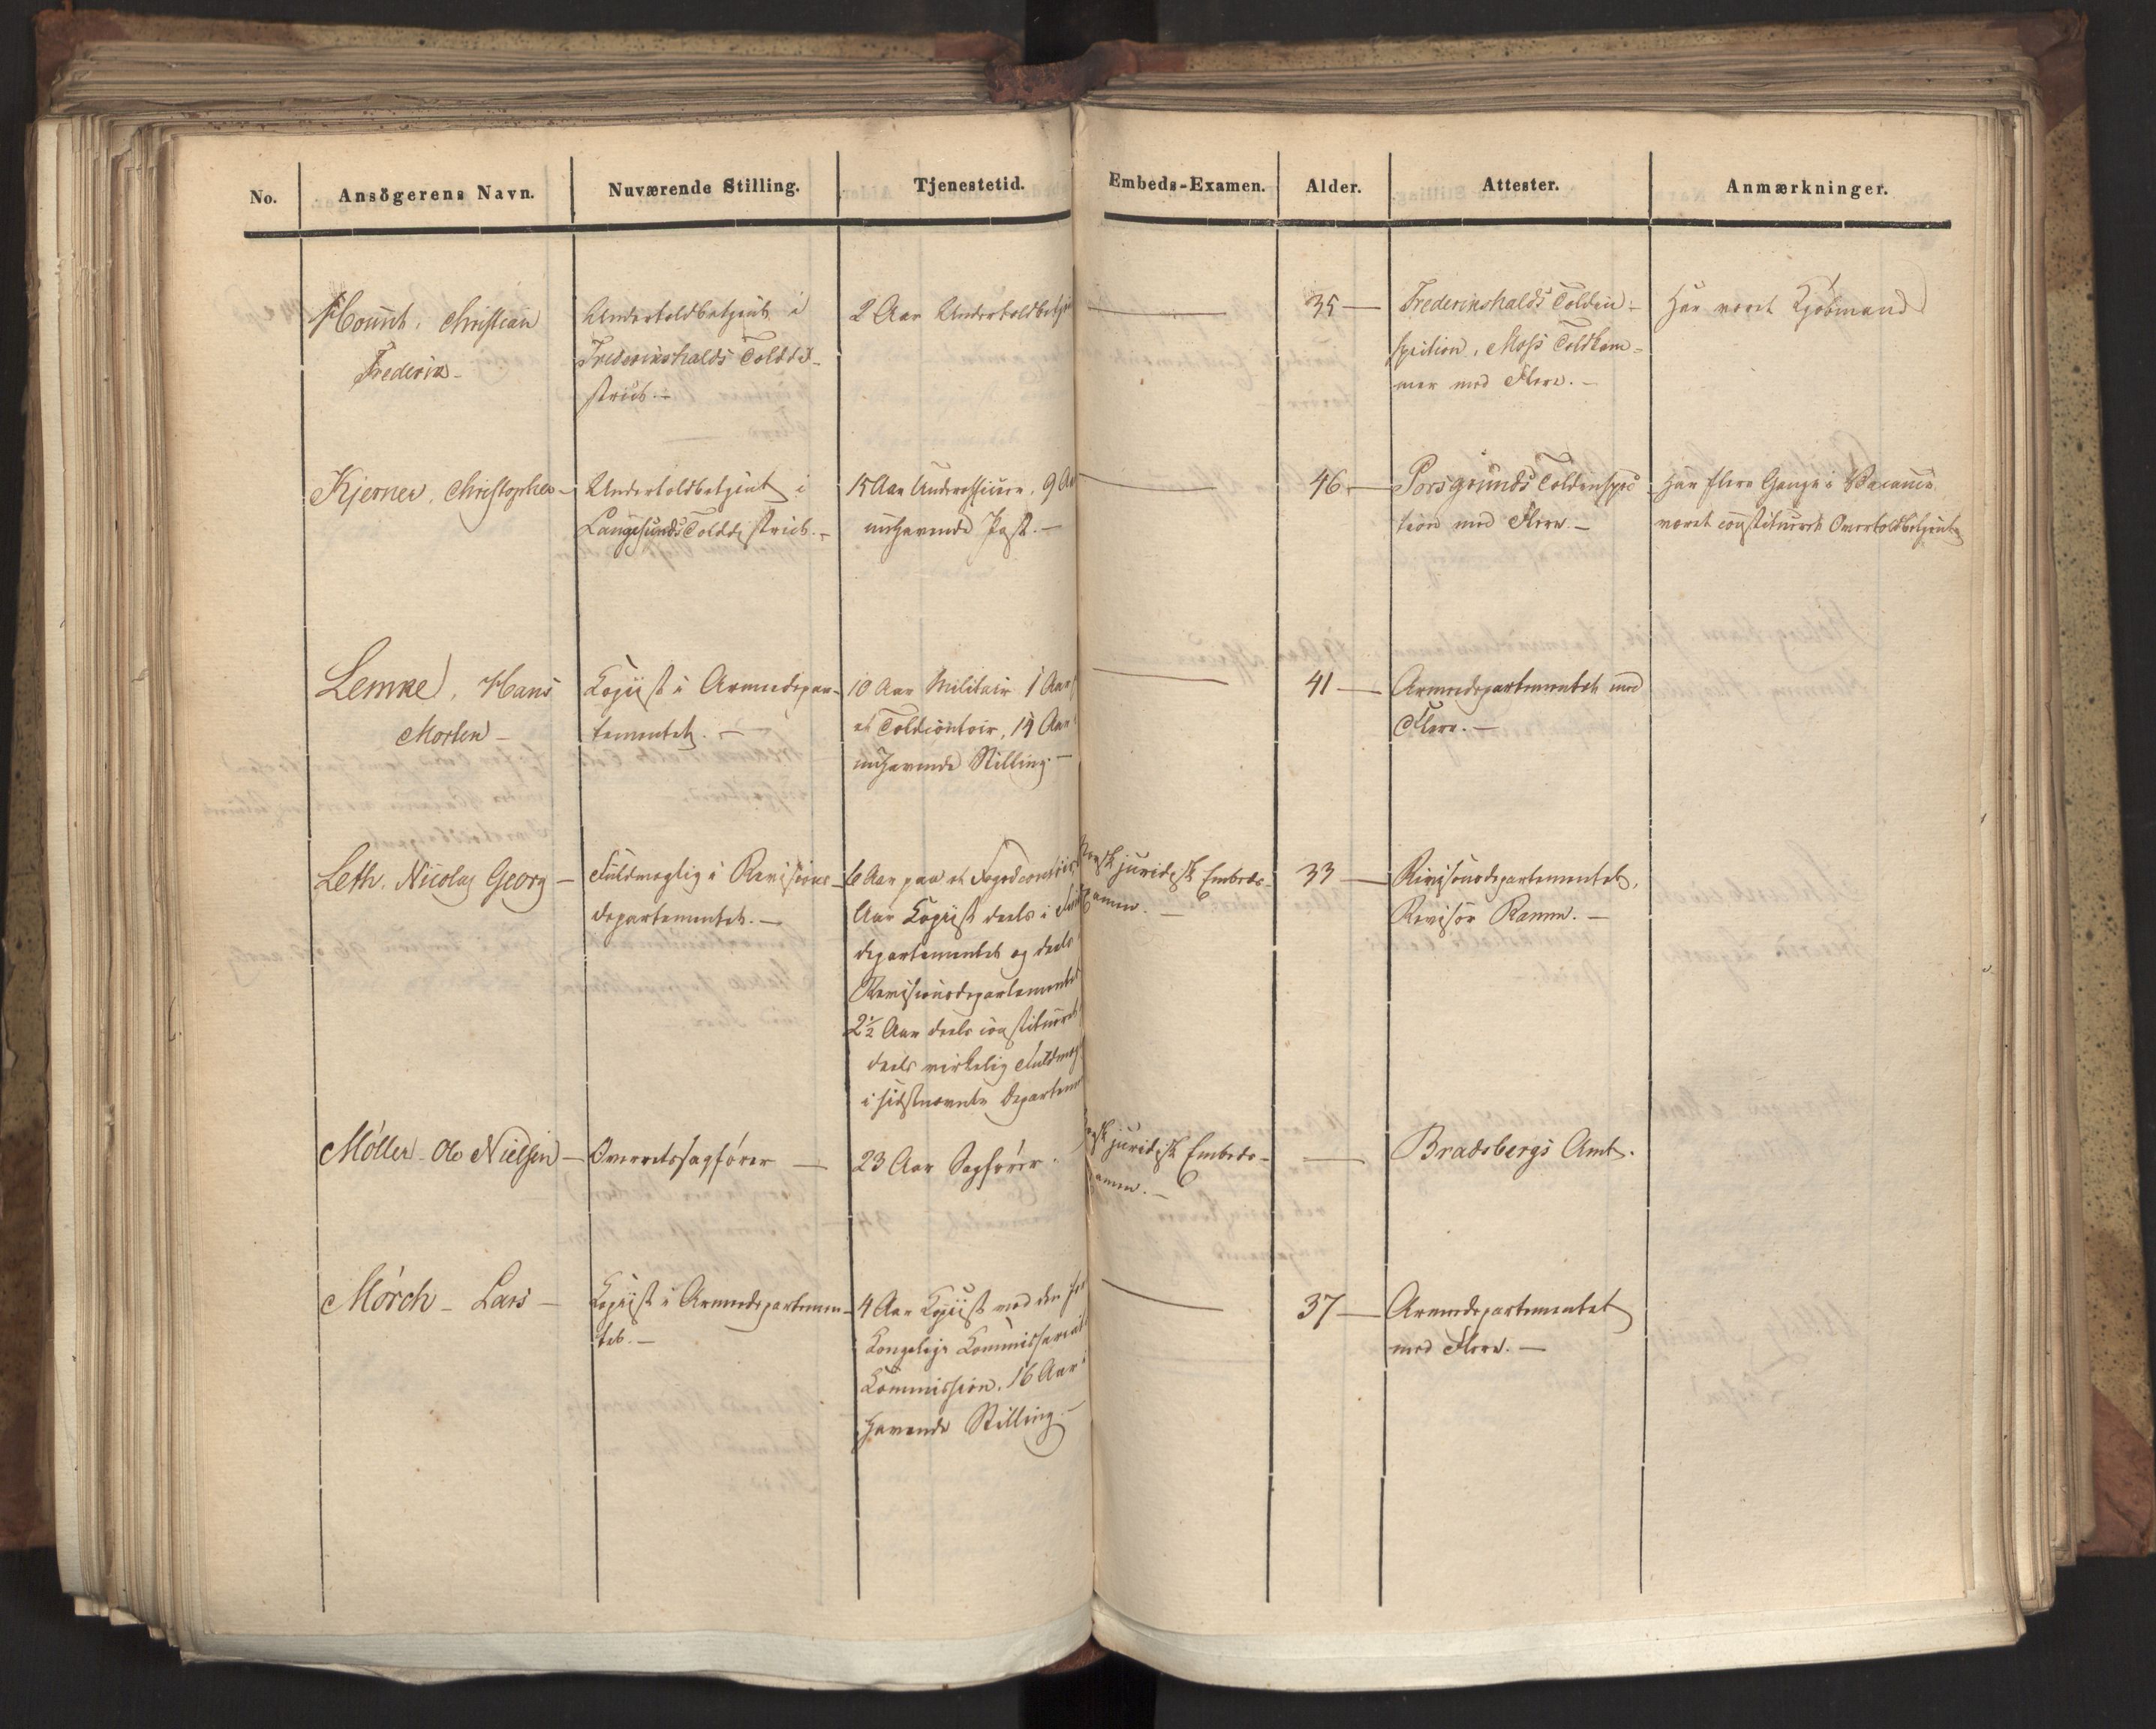 No.
Ansögerens Navn.
Nuværende Stilling.
Tjenestetid.
Embeds-Examen.
Alder.
Attester.
Anmærkninger.
Christian
Frederik
Undertoldbetjent i
Frederikshalds Tolddi-
strict.
2 Aar Undertoldbetj
35
Frederikshalds Toldin-
spection, Moss Toldkam-
mer med Flere.
Har været Kjöbmand
Kjerner, Christopher
Undertoldbetjent i
Langesunds Tolddistrict.
15 Aar Underofficeer, 9 Aa
nuhavende Post.
46
Porsgrunds Toldinspec
tion med Flere.
Har flere Gange i Vacance
været constitueret Overtoldbetjent
Lemke, Hans
Morten
Copiist i Armeedepar-
tementet.
10 Aar Militair 1 Aar
et Toldcontoir, 14 Aar
nuhavende Stilling.
41
Armeedepartementet med
Flere.
Leth, Nicolay Georg
Fuldmægtig i Revisions-
departementet.
6 Aar paa et Fogedcontoir
Aar Copiist deels i
departementet og deels
Revisionsdepartementet
2½ Aar deels constitueret
deels virkelig Fuldmæg
i sidstnævnte Departem
Norsk juridisk Embeds-
Examen.
33
Revisionsdepartementet,
Revisor Ramm.
Möller Ole Nielsen
Overretssagförer
23 Aar Sagförer.
Norsk juridisk Embeds-
Examen.
Bradsbergs Amt.
Mörch Lars
Copiist i Armeedepartemen-
tet.
4 Aar Copiist ved den for
Kongelige Commissariats
Commission, 16 Aar i
havende Stilling.
37
Armeedepartementet
med Flere.